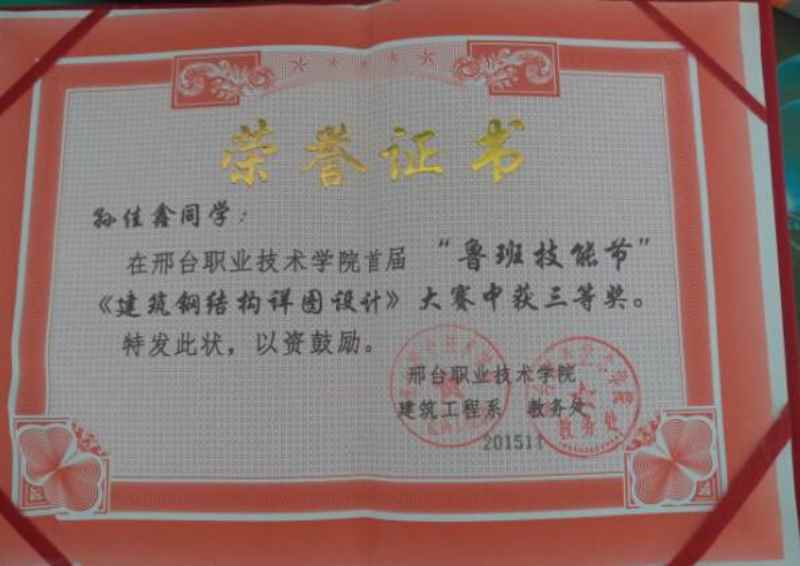 荣誉证书
孙佳鑫同学：
在邢台职业技术学院首届 “鲁班技能节”
《建筑钢结构详图设计》大赛中获三等奖。
特发此状，以资鼓励。
邢台职业技术学院
建筑工程系 教务处
201511
教务处